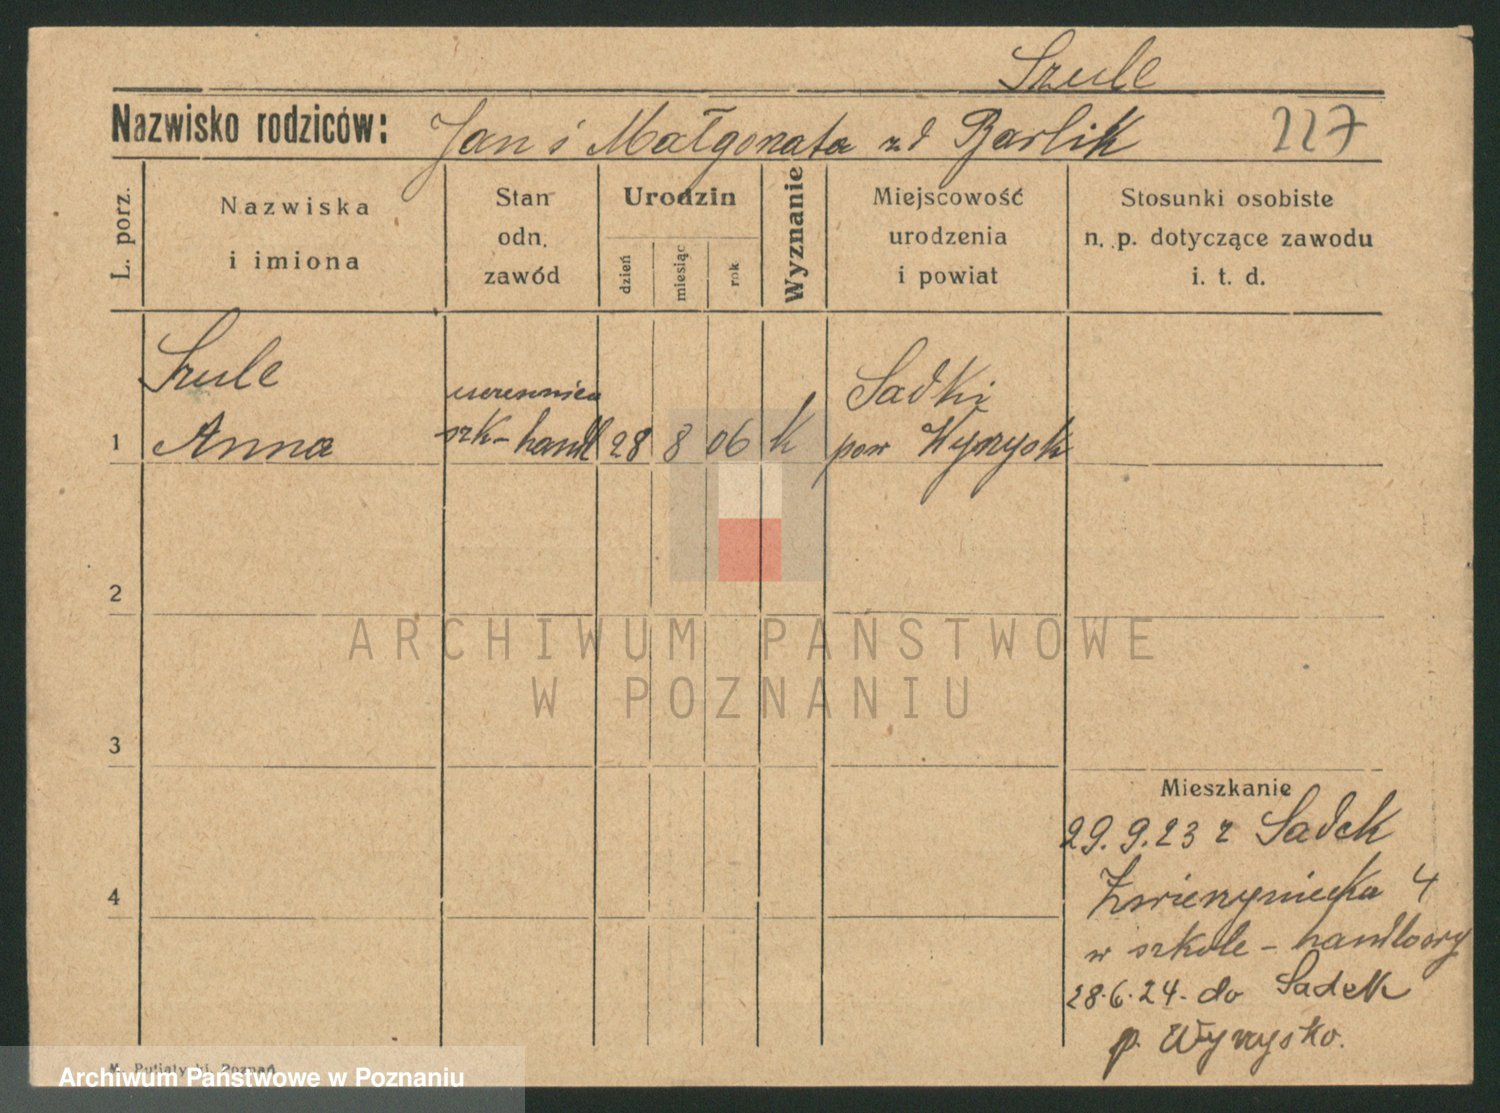 Szulc
Nazwisko rodziców: Jan i Małgorzata zd Barlik 227
L. porz.
Nazwiska
i imiona
Stan
odn.
zawód
Urodzin
dzień
miesiąc
rok
Wyznanie
Miejscowość
urodzenia
i powiat
Stosunki osobiste
n. p. dotyczące zawodu
i. t. d.
Szulc
Anna
uczennica
szk-handl
28 8 06 k
Sadki
pow Wyrzysk
1
2
3
4
ARCHIWUM PAŃSTWOWE
W POZNANIU
Mieszkanie
29.9.23 z Sadek
Zwierzyniecka 4
w szkole-handlowy
28.6.24. do Sadek
p. Wyrzysko.
Poznań
Archiwum Państwowe w Poznaniu